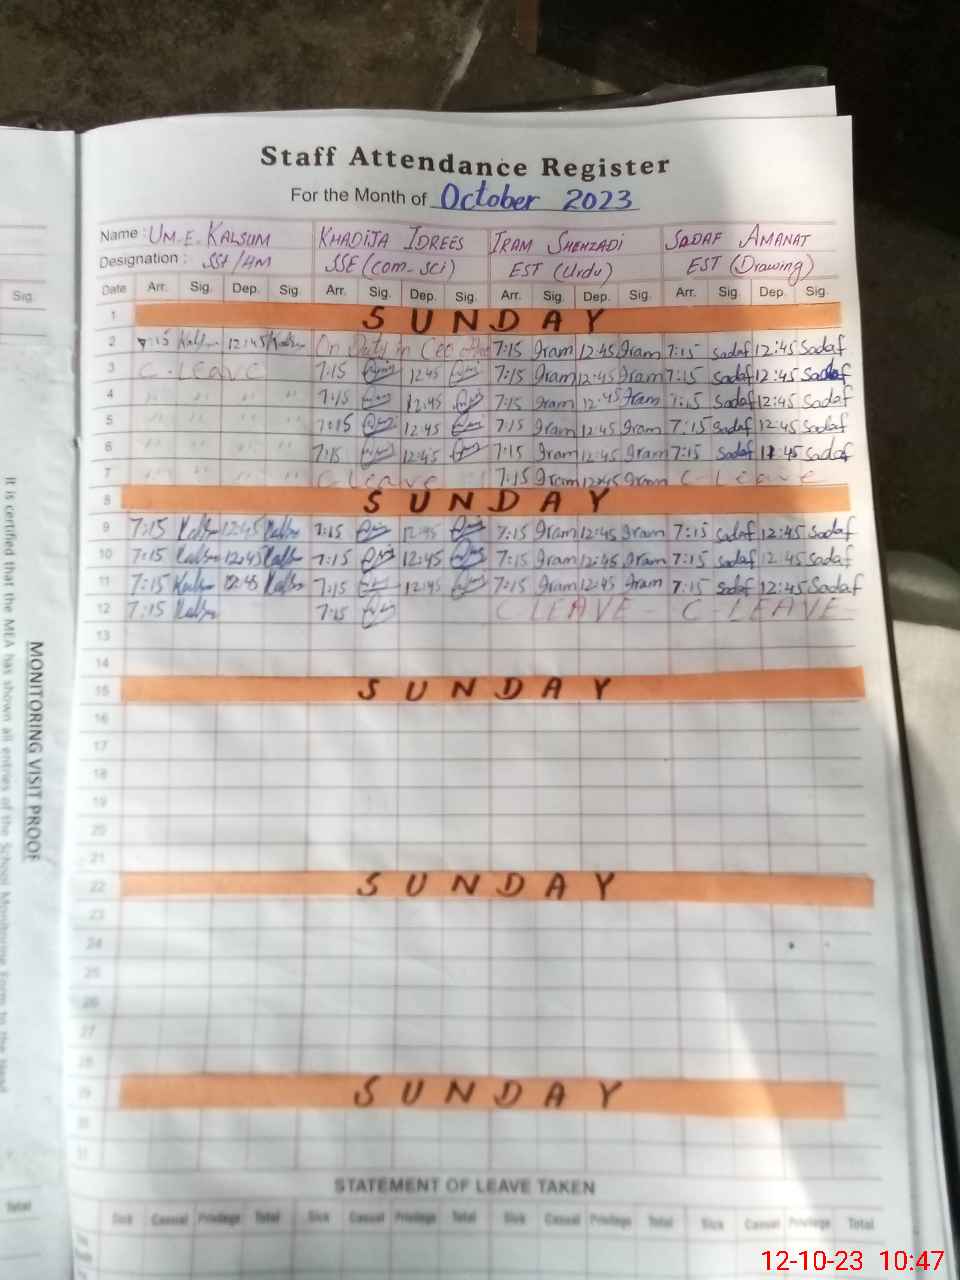 Staff Attendance Register
For the Month of October 2023
Name : UM-E-KALSUM KHADIJA IDREES IRAM SHEHZADI SADAF AMANAT
Designation : SST/HM SSE (com-sci) EST (Urdu) EST (Drawing)
Date Arr. Sig. Dep. Sig. Arr. Sig. Dep. Sig. Arr. Sig. Dep. Sig. Arr. Sig. Dep. Sig.
1 SUNDAY
2 7:15 Kalsum 12:45 Kalsum On Duty in Ceo office 7:15 Iram 12:45 Iram 7:15 Sadaf 12:45 Sadaf
3 C-Leave 7:15 12:45 7:15 Iram 12:45 Iram 7:15 Sadaf 12:45 Sadaf
4 " " " " 7:15 12:45 7:15 Iram 12:45 Iram 7:15 Sadaf 12:45 Sadaf
5 " " " " 7:15 12:45 7:15 Iram 12:45 Iram 7:15 Sadaf 12:45 Sadaf
6 " " " " 7:15 12:45 7:15 Iram 12:45 Iram 7:15 Sadaf 12:45 Sadaf
7 " " " " C Leave 7:15 Iram 12:45 Iram C-Leave
8 SUNDAY
9 7:15 Kalsum 12:45 Kalsum 7:15 12:45 7:15 Iram 12:45 Iram 7:15 Sadaf 12:45 Sadaf
10 7:15 Kalsum 12:45 Kalsum 7:15 12:45 7:15 Iram 12:45 Iram 7:15 Sadaf 12:45 Sadaf
11 7:15 Kalsum 12:45 Kalsum 7:15 12:45 7:15 Iram 12:45 Iram 7:15 Sadaf 12:45 Sadaf
12 7:15 Kalsum 7:15 C LEAVE - C-LEAVE-
13
14
15 SUNDAY
16
17
18
19
20
21
22 SUNDAY
23
24
25
26
27
28
29 SUNDAY
30
31
STATEMENT OF LEAVE TAKEN
Sick Casual Privilege Total Sick Casual Privilege Total Sick Casual Privilege Total Sick Casual Privilege Total
Sig.
MONITORING VISIT PROOF
It is certified that the MEA has shown all entries of the School Monitoring Form to the Head
Total
12-10-23 10:47